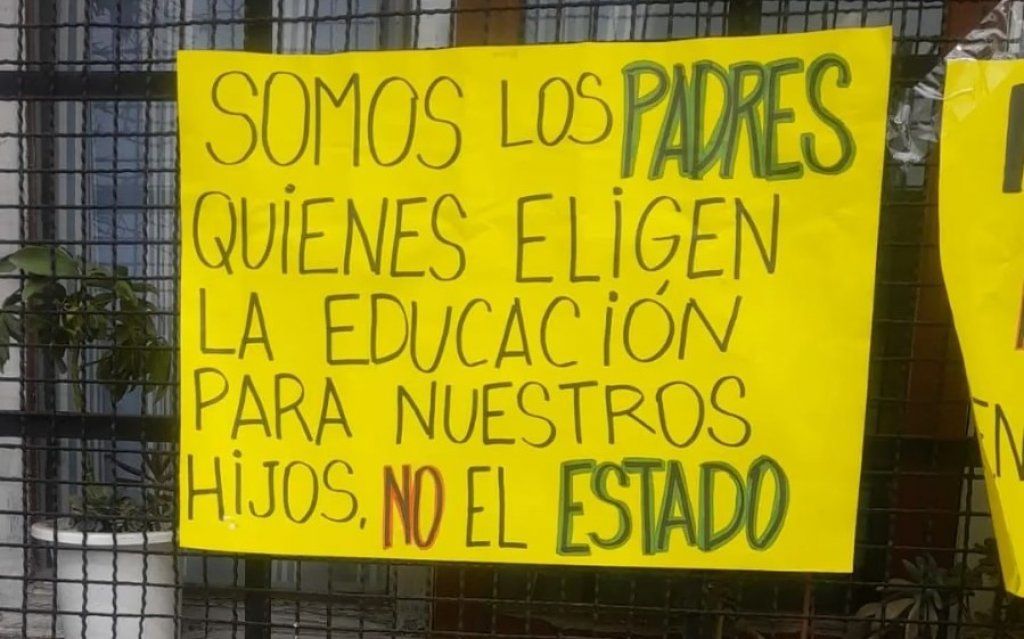 SOMOS LOS PADRES
QUIENES ELIGEN
LA EDUCACIÓN
PARA NUESTROS
HIJOS, NO EL ESTADO